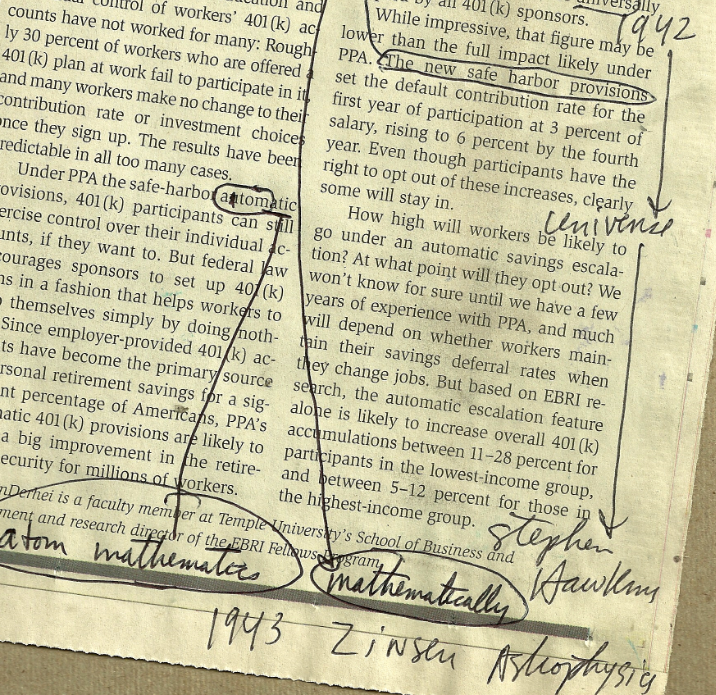 control of workers' 401(k) ac-
counts have not worked for many: Rough-
ly 30 percent of workers who are offered a
401(k) plan at work fail to participate in it,
and many workers make no change to their
contribution rate or investment choices
once they sign up. The results have been
redictable in all too many cases.
Under PPA the safe-harbor automatic
ovisions, 401(k) participants can still
ercise control over their individual ac-
unts, if they want to. But federal law
courages sponsors to set up 401(k)
ns in a fashion that helps workers to
themselves simply by doing noth-
Since employer-provided 401(k) ac-
ts have become the primary source
rsonal retirement savings for a sig-
nt percentage of Americans, PPA's
matic 401(k) provisions are likely to
a big improvement in the retire-
ecurity for millions of workers.
by all 401(k) sponsors.
1942
While impressive, that figure may be
lower than the full impact likely under
PPA. The new safe harbor provisions
set the default contribution rate for the
first year of participation at 3 percent of
salary, rising to 6 percent by the fourth
year. Even though participants have the
right to opt out of these increases, clearly
some will stay in.
universe
How high will workers be likely to
go under an automatic savings escala-
tion? At what point will they opt out? We
won't know for sure until we have a few
years of experience with PPA, and much
will depend on whether workers main-
tain their savings deferral rates when
they change jobs. But based on EBRI re-
search, the automatic escalation feature
alone is likely to increase overall 401(k)
accumulations between 11–28 percent for
participants in the lowest-income group,
and between 5–12 percent for those in
the highest-income group.
nDerhei is a faculty member at Temple University's School of Business and
ment and research director of the EBRI Fellows Program.
atom mathematics
mathematically
Stephen
Hawking
1943 Zinsen Astrophysic